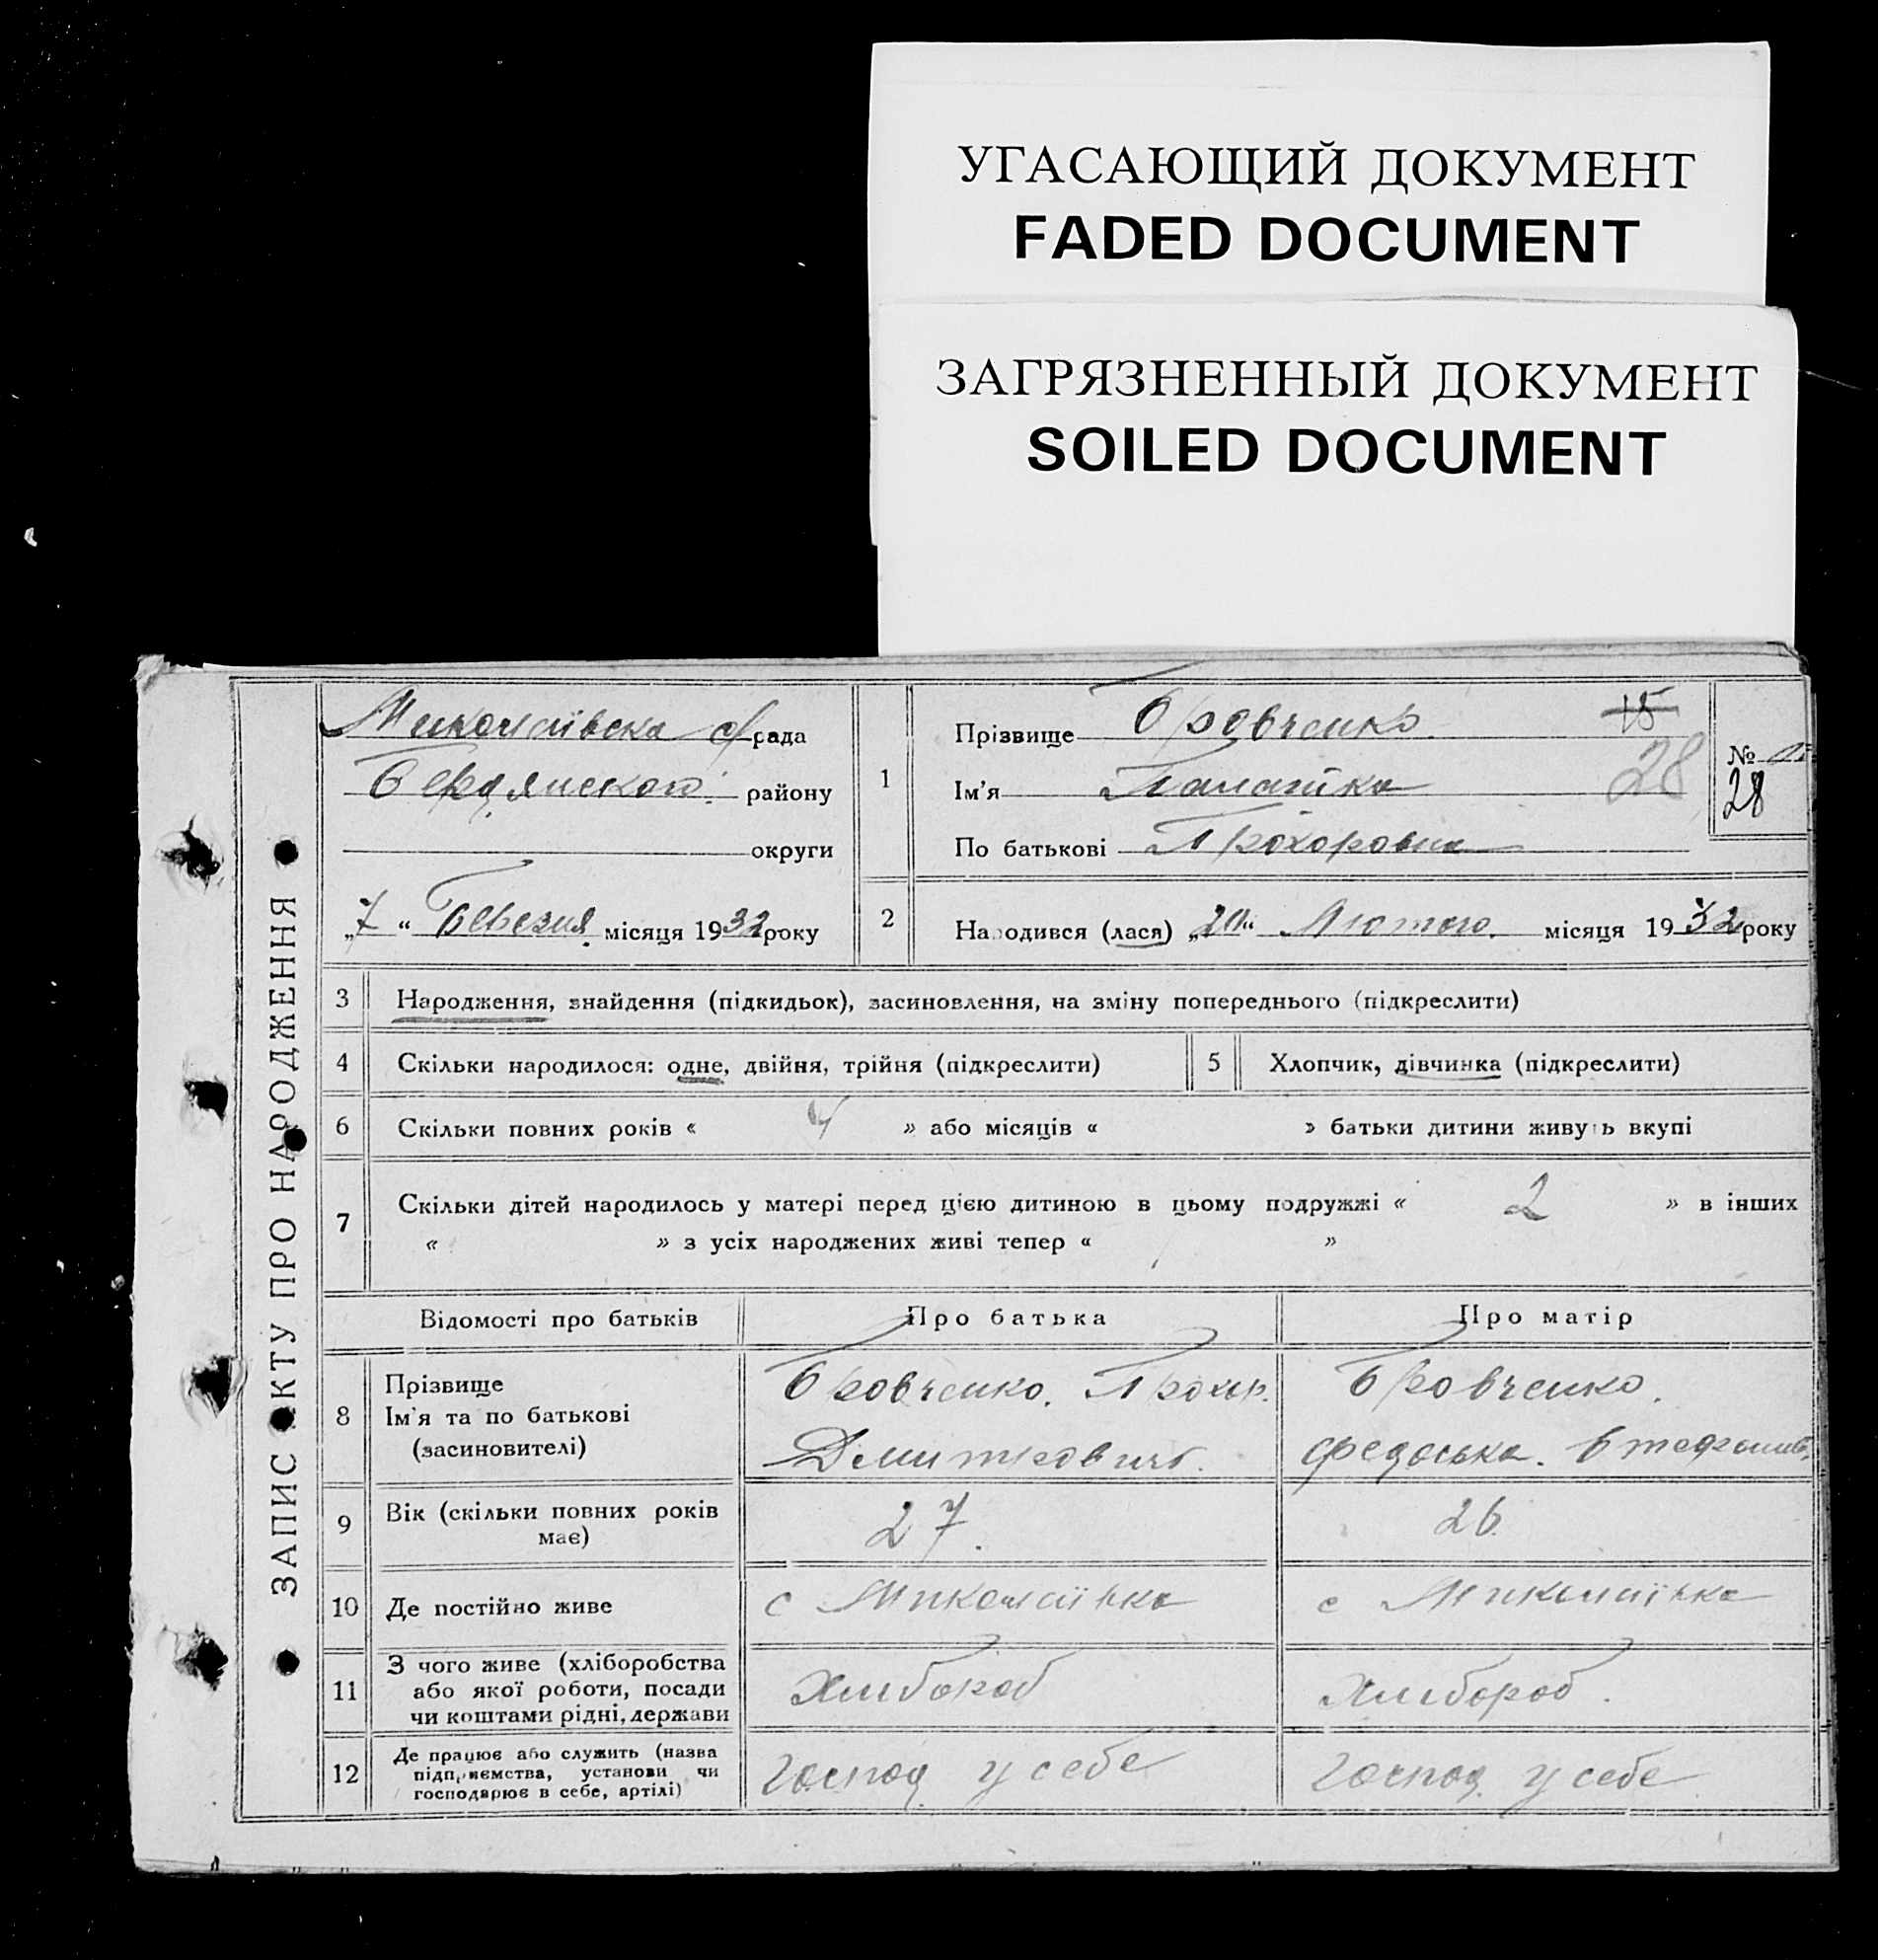 УГАСАЮЩИЙ ДОКУМЕНТ
FADED DOCUMENT
ЗАГРЯЗНЕННЫЙ ДОКУМЕНТ
SOILED DOCUMENT
ЗАПИС АКТУ ПРО НАРОДЖЕННЯ
Миколаївска с/рада
Бердянского району
округи
„7“ Березня місяця 1932 року
1
Прізвище Бровченко 15
Ім'я 28
По батькові Прохоровна
№
28
2
Народився (лася) „20“ Лютого місяця 1932 року
3 Народження, знайдення (підкидьок), засиновлення, на зміну попереднього (підкреслити)
4 Скільки народилося: одне, двійня, трійня (підкреслити) 5 Хлопчик, дівчинка (підкреслити)
6 Скільки повних років « 4 » або місяців « » батьки дитини живуть вкупі
7 Скільки дітей народилось у матері перед цією дитиною в цьому подружжі « 2 » в інших
« » з усіх народжених живі тепер « »
Відомості про батьків Про батька Про матір
8 Прізвище
Ім'я та по батькові
(засиновителі)
Бровченко. Прохор.
Дмитрович.
Бровченко.
Федоська.
9 Вік (скільки повних років
має)
27. 26.
10 Де постійно живе с Миколаївка с Миколаївка
11 З чого живе (хліборобства
або якої роботи, посади
чи коштами рідні, держави
Хлибороб Хлибороб.
12 Де працює або служить (назва
підприємства, установи чи
господарює в себе, артілі)
Господ. у себе Господ. у себе